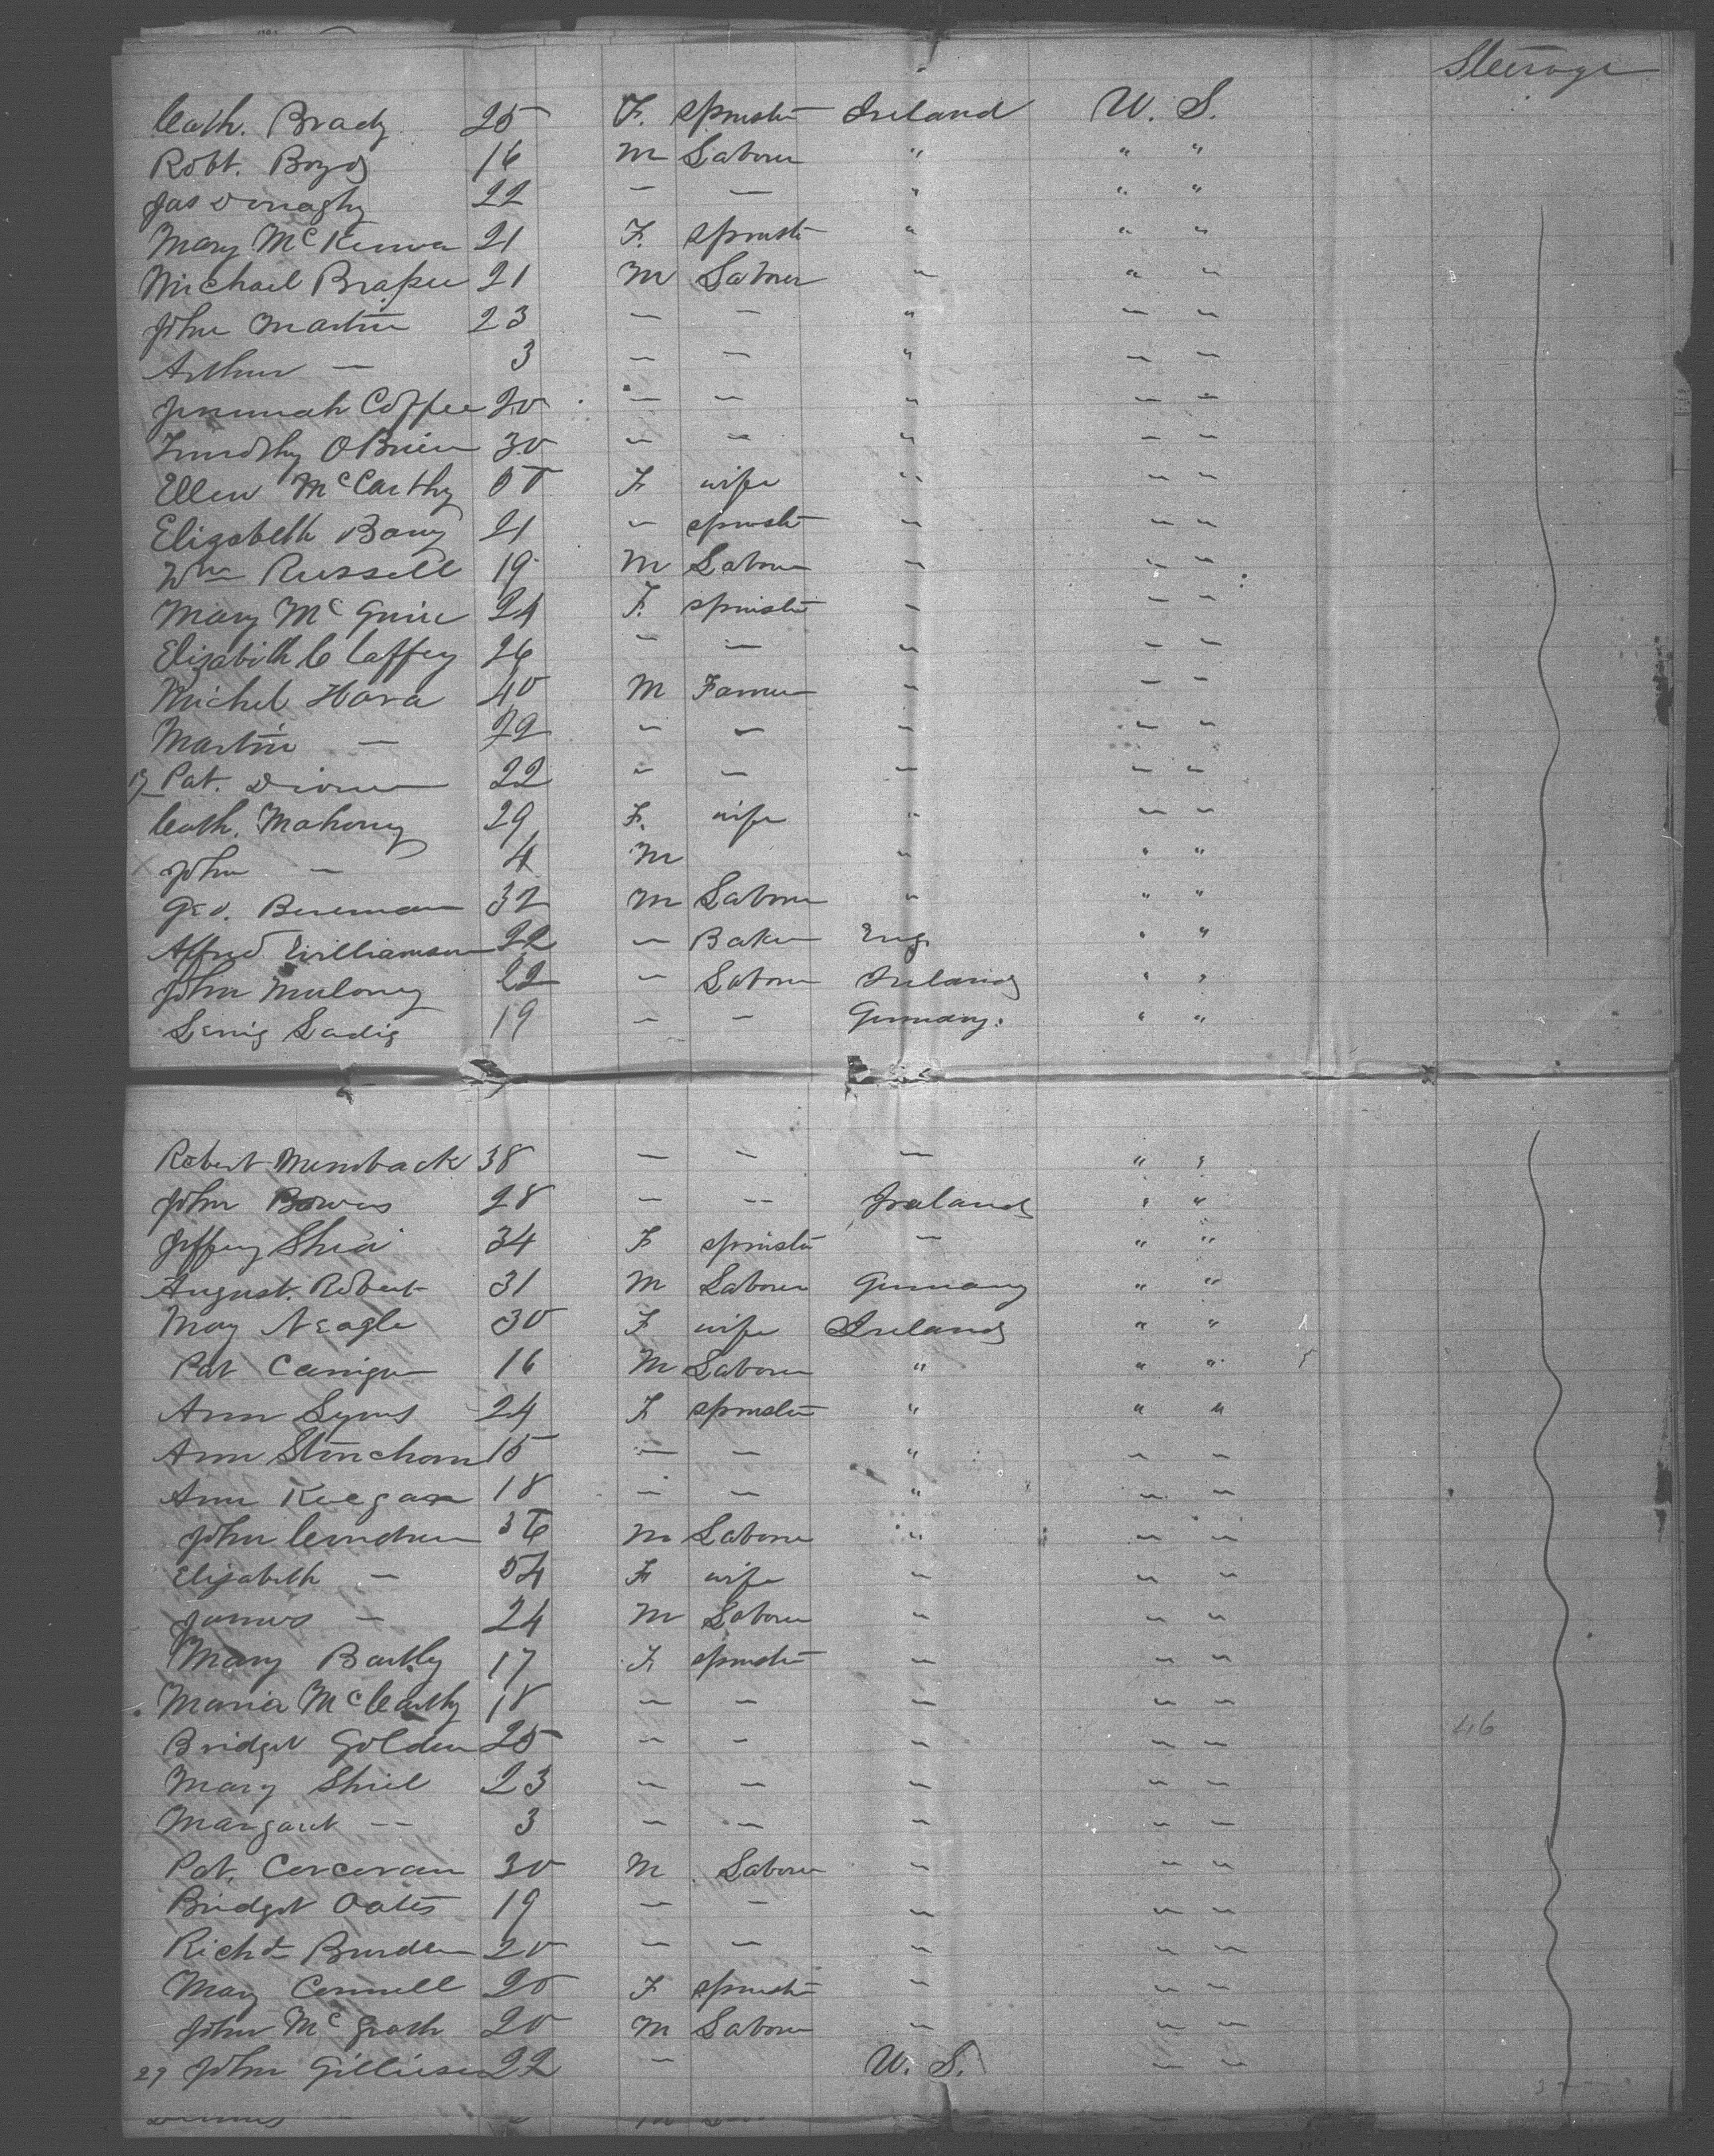 Steerage
Cath. Brady 25 F. spinster Ireland U. S.
Robt. Boyd 16 M Laborer " " "
Jas Donaghy 22 — — " " "
Mary McKenna 21 F. spinster " " "
Michael 21 M Laborer " " "
John Martin 23 — — " " "
Arthur — 3 — — " " "
Jeremiah Coffee 20 — — " " "
Timothy OBrien 30 " " " " "
Ellen McCarthy F wife " " "
Elizabeth Barry 21 " spinster " " "
Wm Russell 19 M Laborer " " "
Mary McGuire 24 F. spinster " " "
Elizabeth Claffey 26 " — " " "
Michel Hara 40 M Farmer " " "
Martin — 22 " " " " "
17 Pat. 22 " " " " "
Cath. Mahoney 29 F. wife " " "
John — 4 M " " "
Geo. 32 M Laborer " " "
Alfred Williamson 22 " Baker Eng. " "
John Maloney 22 " Laborer Ireland " "
Ladig 19 " " Germany. " "
Robert 38 — — — " "
John Bowes 28 — — Ireland " "
Jeffery Shea 34 F spinster — " "
August. Robert 31 M Laborer Germany " "
May Neagle 30 F wife Ireland " "
Pat 16 M Laborer " " "
Ann Lyons 24 F spinster " " "
Ann 15 — — " " "
Ann Keegan 18 — — " " "
John Condren 36 M Laborer " " "
Elizabeth — 54 F wife " " "
James — 24 M Laborer " " "
Mary Bartley 17 F spinster " " "
Maria McCarthy 18 — — " " "
Bridget Golden 25 — — " " " 46
Mary Shiel 23 — — " " "
Margaret — 3 — — " " "
Pat. Corcoran 30 M Laborer " " "
Bridget Oates 19 — — " " "
Richd Burden 20 — — " " "
May Connell 20 F spinster " " "
John McGrath 20 M Laborer " " "
29 John 22 — U. S. " "